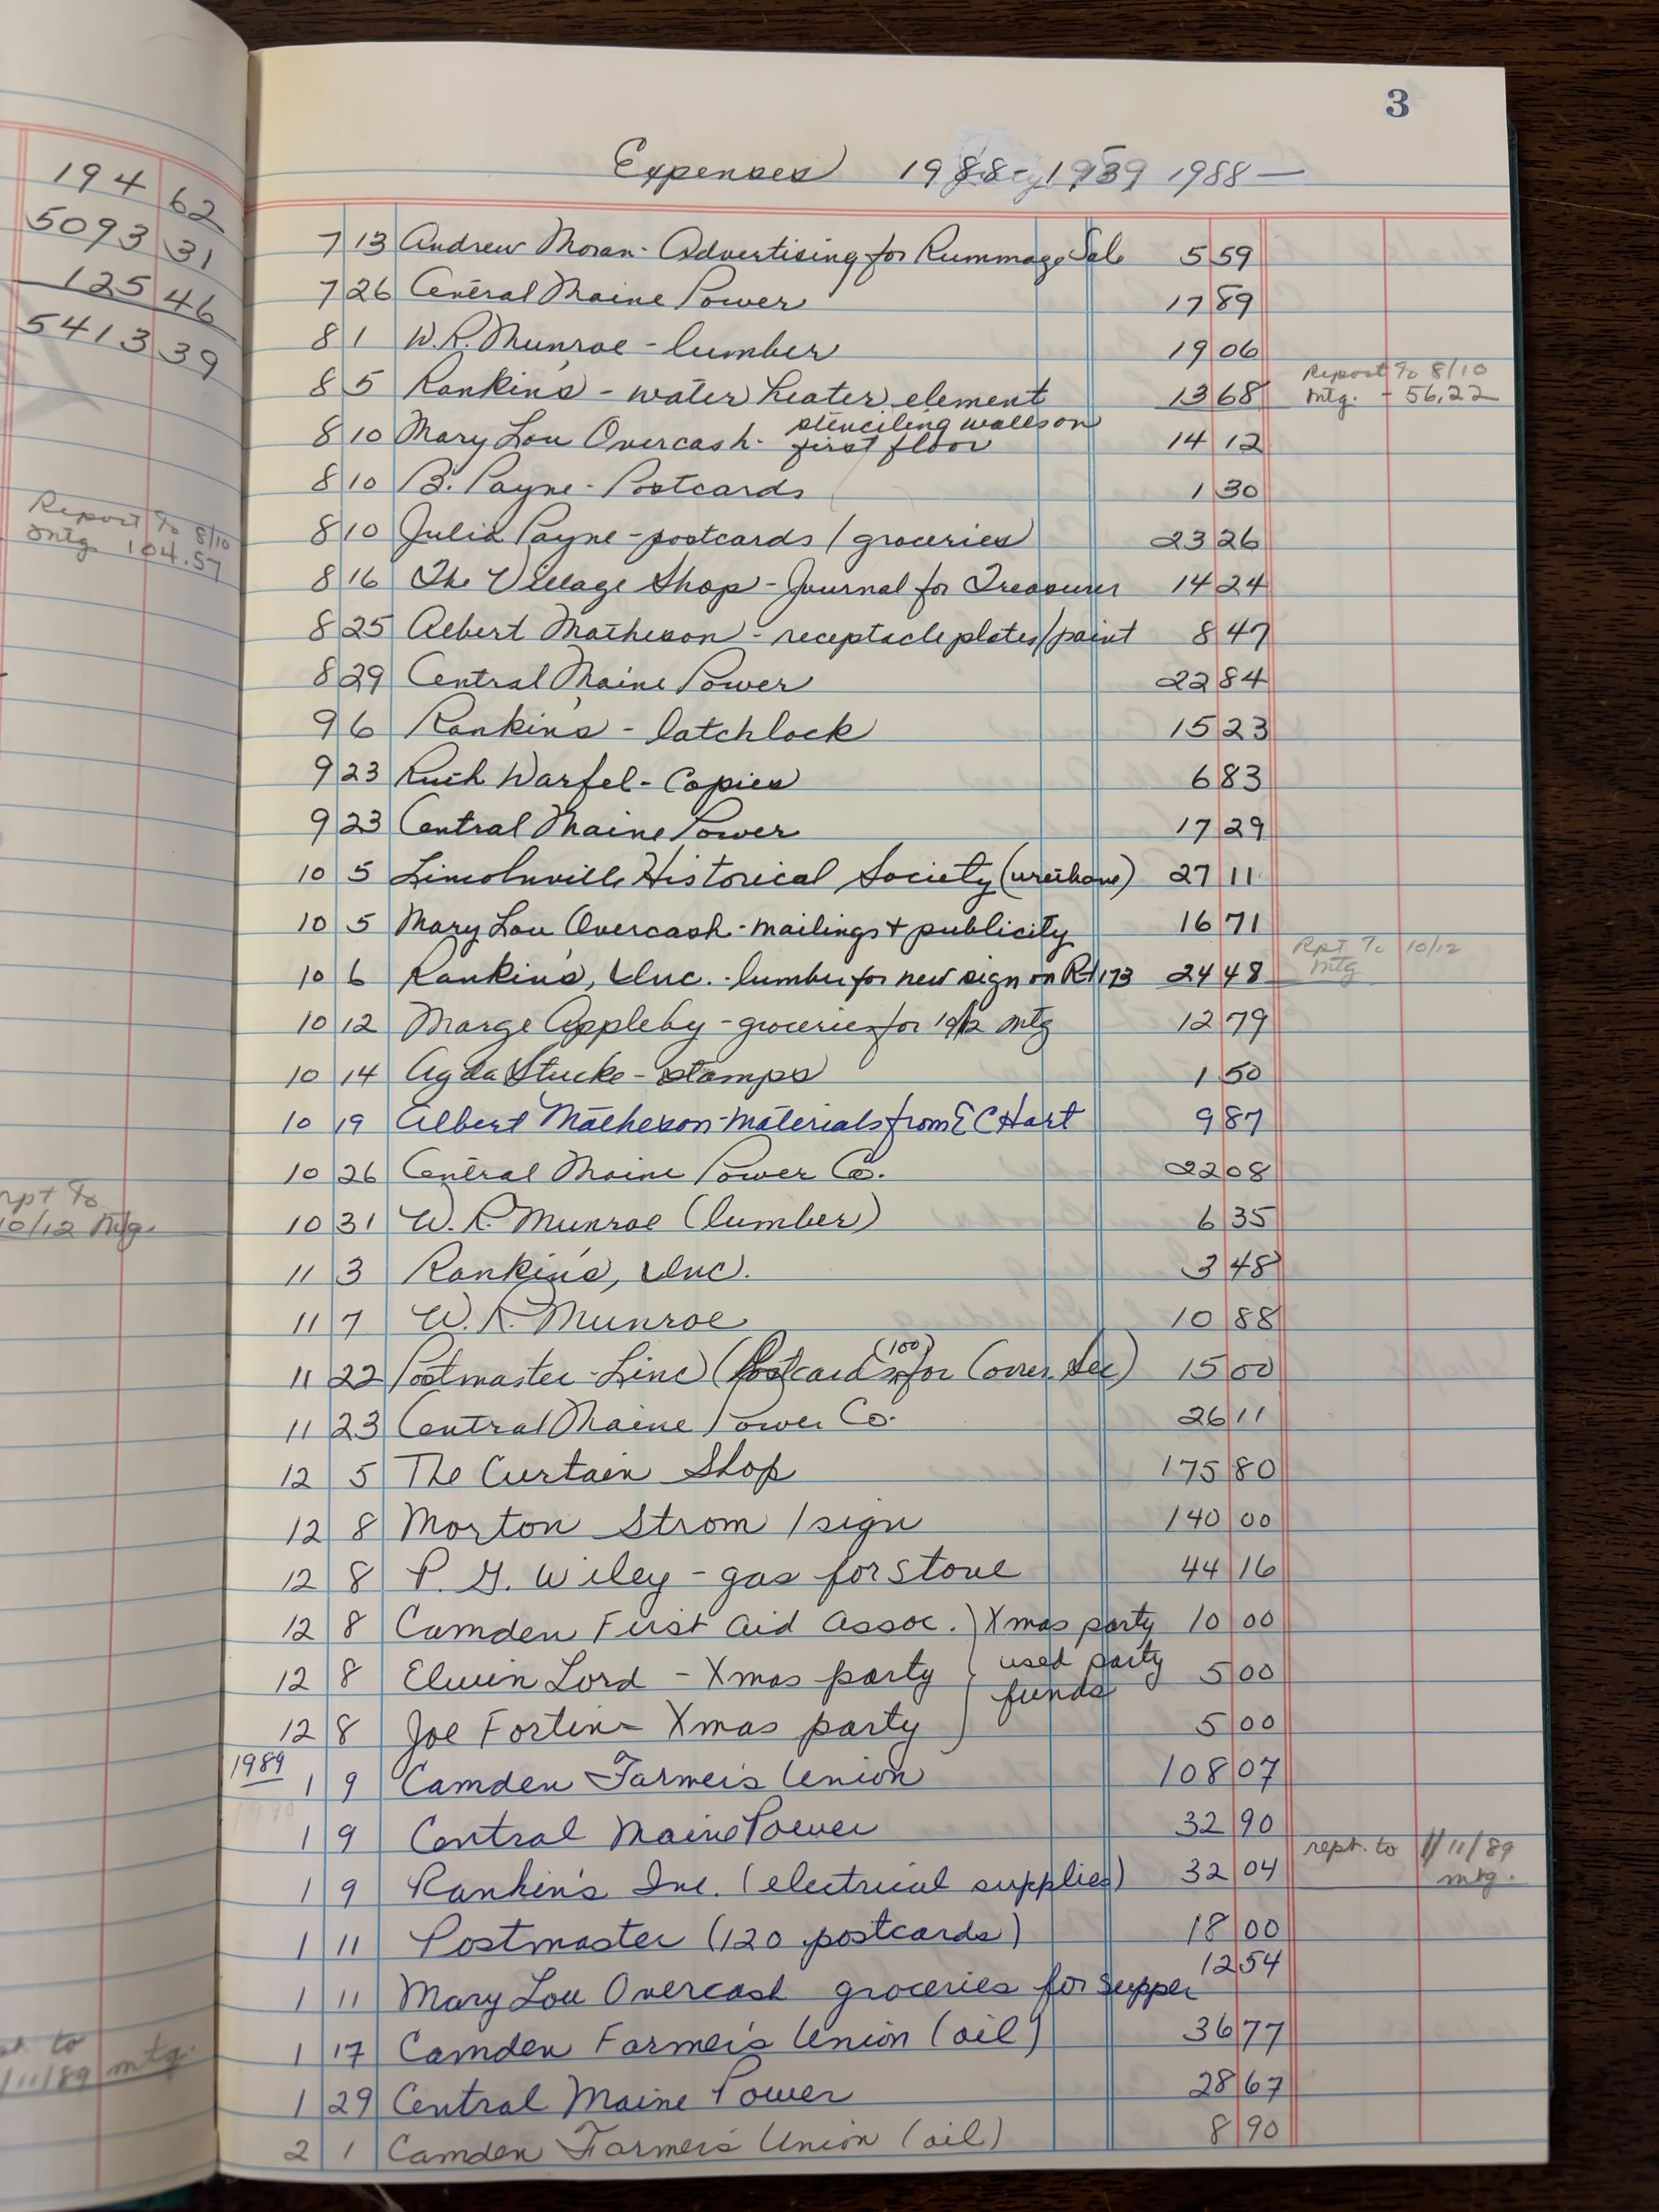 194 62
5093 31
125 46
5413 39
Report To 8/10
mtg 104.57
rpt To
10/12 Mtg.
to
1/11/89 mtg.
3
Expenses 1988-1989 1988—
7 13 Andrew Moran - Advertising for Rummage Sale 5 59
7 26 Central Maine Power 17 89
8 1 W.R. Munroe - lumber 19 06
8 5 Rankin's - water heater element 13 68 Report To 8/10
mtg. - 56.22
stenciling walls on
8 10 Mary Lou Overcash - first floor 14 12
8 10 B. Payne - Postcards 1 30
8 10 Julia Payne - postcards / groceries 23 26
8 16 The Village Shop - Journal for Treasurer 14 24
8 25 Albert Matheson - receptacle plates/paint 8 47
8 29 Central Maine Power 22 84
9 6 Rankin's - latchlock 15 23
9 23 Ruth Warfel - Copies 6 83
9 23 Central Maine Power 17 29
10 5 Lincolnville Historical Society (urethane) 27 11
10 5 Mary Lou Overcash - mailings + publicity 16 71
10 6 Rankin's, Inc. - lumber for new sign on Rt 173 24 48 Rpt To 10/12
mtg
10 12 Marge Appleby - groceries for 10/12 mtg 12 79
10 14 Agda Stucke - stamps 1 50
10 19 Albert Matheson - materials from E C Hart 9 87
10 26 Central Maine Power Co. 22 08
10 31 W. R. Munroe (lumber) 6 35
11 3 Rankin's, Inc. 3 48
11 7 W. R. Munroe 10 88
(100)
11 22 Postmaster - Linc (Postcards for Corres. Sec) 15 00
11 23 Central Maine Power Co. 26 11
12 5 The Curtain Shop 175 80
12 8 Morton Strom / sign 140 00
12 8 P. G. Wiley - gas for stove 44 16
12 8 Camden First Aid Assoc. ) Xmas party 10 00
12 8 Elwin Lord - Xmas party used party 5 00
funds
12 8 Joe Fortin - Xmas party 5 00
1989
1 9 Camden Farmer's Union 108 07
1 9 Central Maine Power 32 90
1 9 Rankin's Inc. (electrical supplies) 32 04 rept. to 1/11/89
mtg.
1 11 Postmaster (120 postcards) 18 00
1 11 Mary Lou Overcash groceries for supper 12 54
1 17 Camden Farmer's Union (oil) 36 77
1 29 Central Maine Power 28 67
2 1 Camden Farmer's Union (oil) 8 90